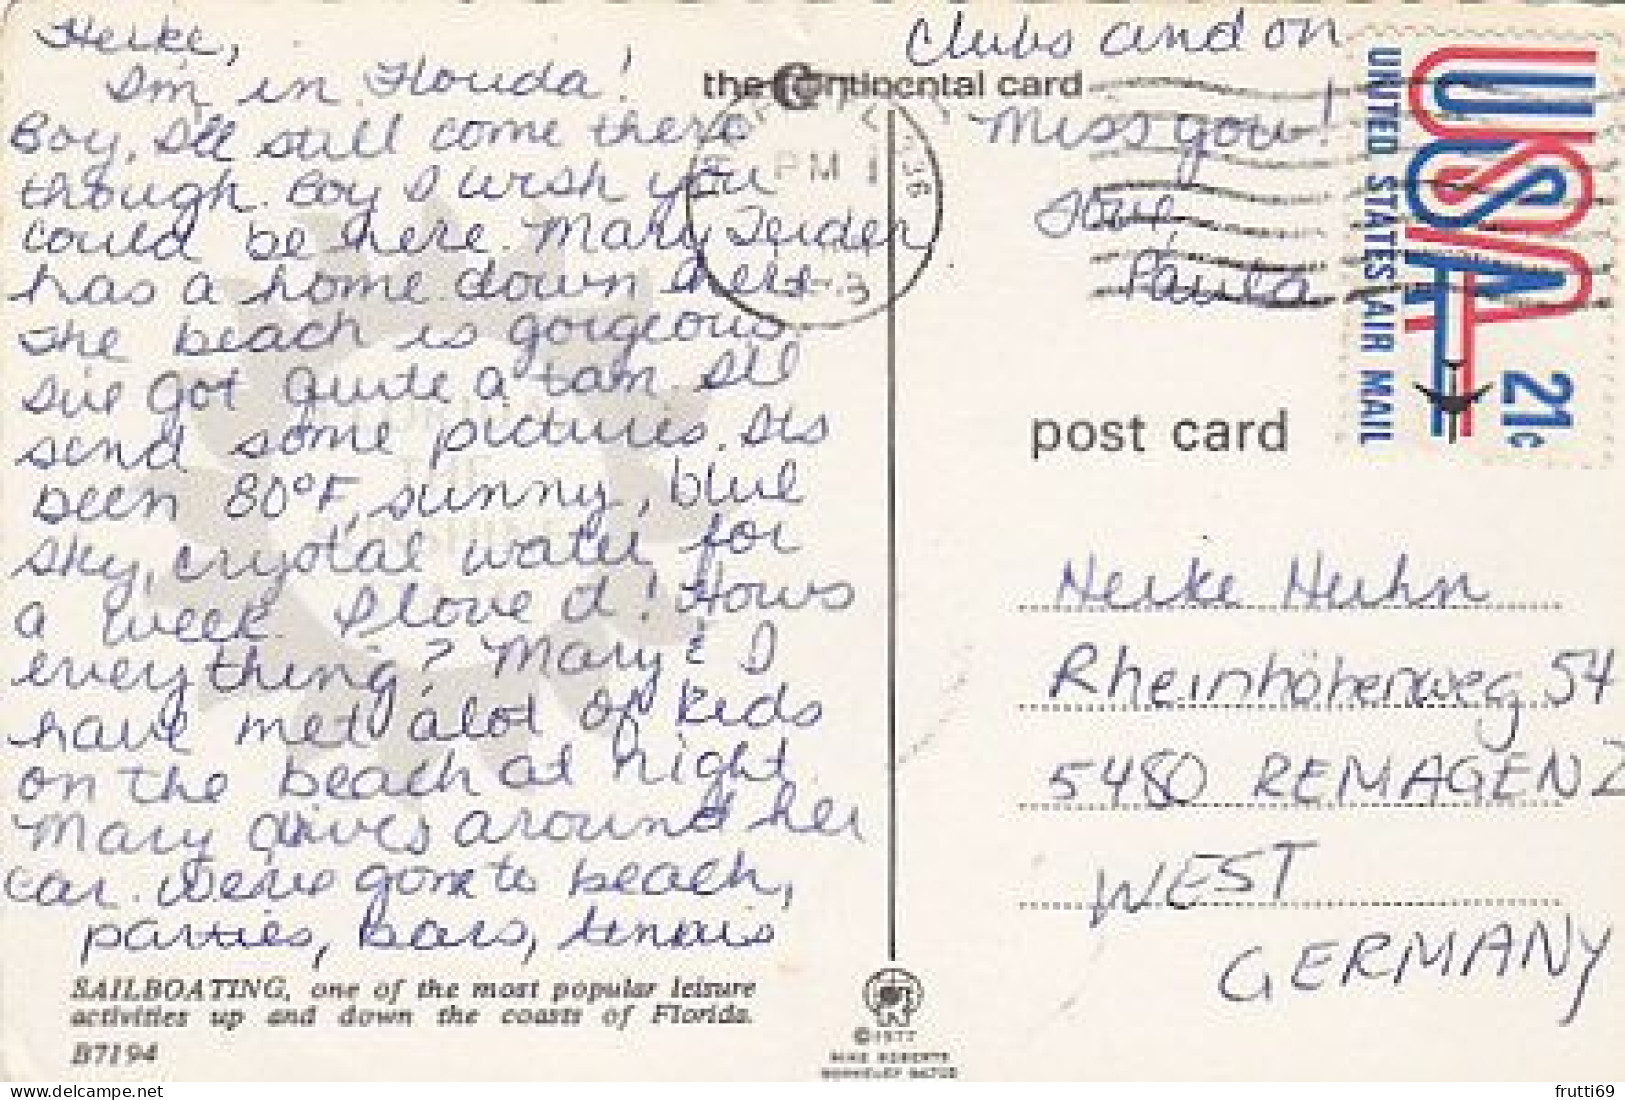 Heike,
I'm in Florida!
Boy, I'll still come there
though. Boy I wish you
could be here. Mary Teider
has a home down here
The beach is gorgeous
I've got quite a tan. I'll
send some pictures. Its
been 80°F, sunny, blue
sky, crystal water for
a week. I love it! Hows
everything? Mary & I
have met alot of kids
on the beach at night.
Mary drives around her
car. We've gone to beach,
parties, bars, tennis
Clubs and on
Miss you!
Love,
Paula
SAILBOATING, one of the most popular leisure
activities up and down the coasts of Florida.
B7194
the continental card
PM
336
post card
©1977
MIKE ROBERTS
BERKELEY 94702
USA
UNITED STATES AIR MAIL
21c
Heike Huhn
Rheinhöhenweg 54
5480 REMAGEN 2
WEST
GERMANY
frutti69